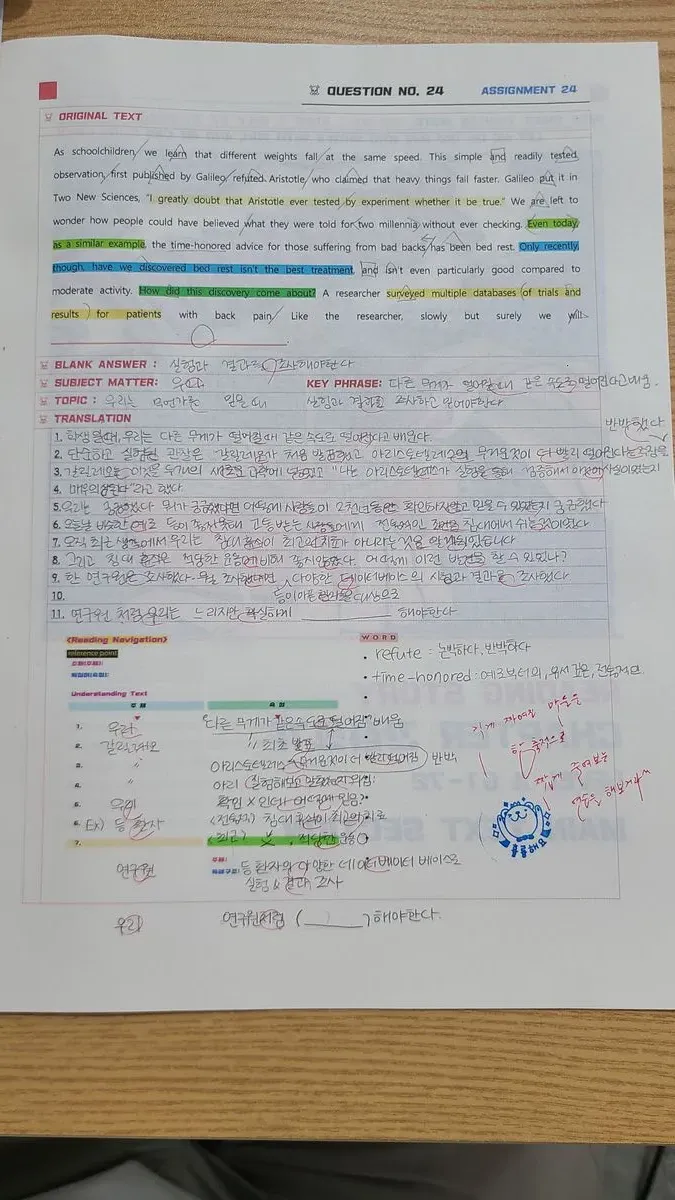 QUESTION NO. 24 ASSIGNMENT 24
ORIGINAL TEXT
As schoolchildren we learn that different weights fall at the same speed. This simple and readily tested
observation, first published by Galileo, refuted Aristotle, who claimed that heavy things fall faster. Galileo put it in
Two New Sciences, "I greatly doubt that Aristotle ever tested by experiment whether it be true." We are left to
wonder how people could have believed what they were told for two millennia without ever checking. Even today,
as a similar example, the time-honored advice for those suffering from bad backs has been bed rest. Only recently,
though, have we discovered bed rest isn't the best treatment, and isn't even particularly good compared to
moderate activity. How did this discovery come about? A researcher surveyed multiple databases of trials and
results for patients with back pain. Like the researcher, slowly but surely we will
BLANK ANSWER : 실험과 결과를 조사해야한다
SUBJECT MATTER: 우리 KEY PHRASE: 다른 무게가 떨어질때 같은 속도로 떨어진다고 배움.
TOPIC : 우리는 무언가를 믿을때 실험과 결과를 조사하고 믿어야한다
TRANSLATION
반박했다
1. 학생일때, 우리는 다른 무게가 떨어질때 같은 속도로 떨어진다고 배운다.
2. 단순하고 실험된 관찰은 갈릴레오가 처음 발표했고 아리스토텔레스의 무거운것이 더 빨리 떨어진다는
3. 갈릴레오는 이것을 두개의 새로운 과학에 넣었고 "나는 아리스토텔레스가 실험을 통해
4. 매우의심된다"라고 했다.
5. 우리는 궁금했다
6. 오늘날 비슷한 예로 등이 고통받는 사람들에게 전통적인 조언은 침대에서 쉬는것이었다
7. 오직 최근에서 우리는 침대 휴식이 최고의 치료가 아니라는것을 발견되었습니다
8. 그리고 침대 휴식은 적당한 운동에 비해 좋지않았다. 어떻게 이런 발견을 할 수 있었나?
9. 한 연구원은 조사했다. 다양한 데이터베이스의 시험과 결과를 조사했다
10. 등이아픈 환자를 대상으로
11. 연구원 처럼 우리는 느리지만 확실하게 해야한다
(Reading Navigation)
WORD
reference point
• refute : 논박하다, 반박하다
• time-honored : 예로부터의, 유서 깊은, 전통적인
Understanding Text
주 제 속 성
1. 우리 다른 무게가 같은속도로 떨어짐 배움
2. 갈릴레오 // 최초 발표
3. " 아리스토텔레스 무거운것이 더 빨리떨어짐 반박
4. " 아리 실험해보고 말했는지 의심
5. 우리 확인 X 인데 어떻게 믿음?
6. Ex) 등 환자 <전통적> 침대 휴식이 최고의 치료
7. <최근> X, 적당한 운동 O
연구원 등 환자의 다양한 데이터베이스로
실험 & 결과 조사
우리 연구원처럼 ( ) 해야한다.
길게 쪼여진 말들을
함축적으로
짧게 줄여보는
연습을 해보거라^^
훌륭해요